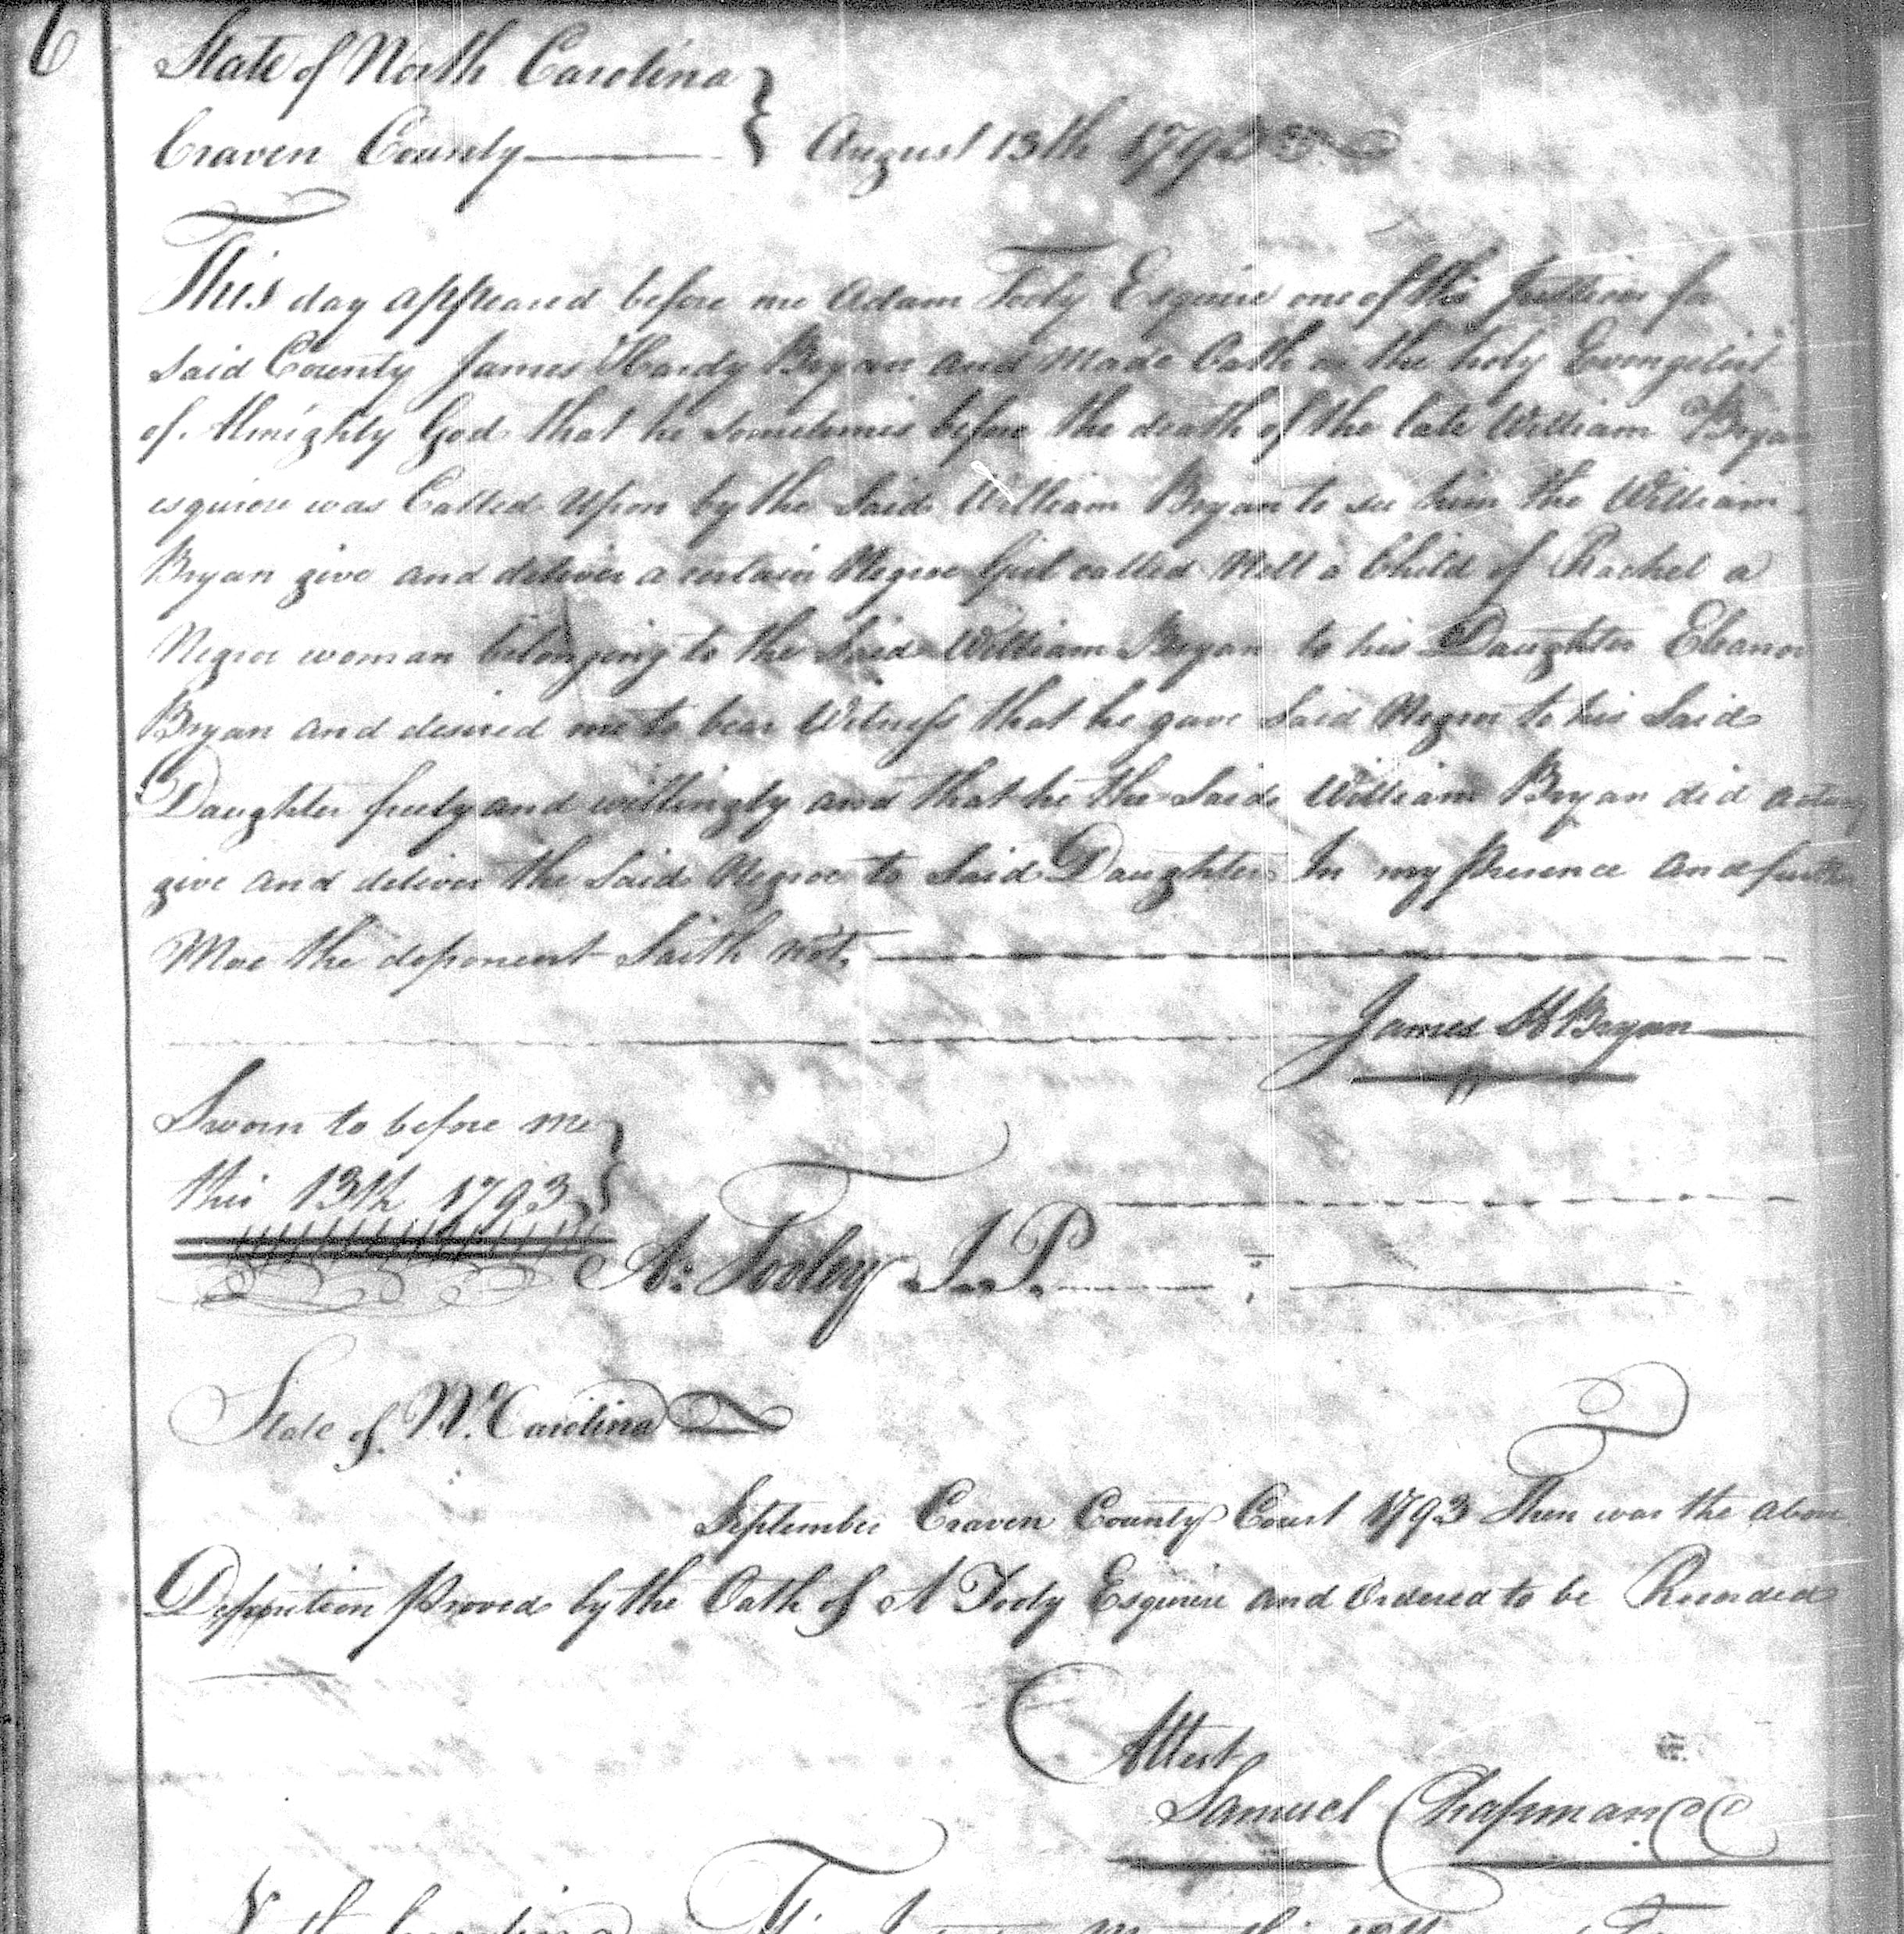 6
State of North Carolina
Craven County August 13th
This day appeared before me Adam Tooly Esquire one of the Justices for
Said County James Hardy Bryan and Made Oath on the holy Evangelist
of Almighty God that he sometimes before the death of the late William Bryan
esquire was Called Upon by the Said William Bryan to see him the William
Bryan give and deliver a certain Negroe Girl called Nell a Child of Rachel a
Negroe woman belonging to the Said William Bryan to his Daughter Eleanor
Bryan and desired me to bear Witness that he gave Said Negroe to his Said
Daughter freely and willingly and that he the Said William Bryan did
give and deliver the Said Negroe to Said Daughter In my Presence and further
More the deponent Saith not,
James H Bryan
Sworn to before me
this 13th 1793
A: Tooley J. P.
State of No. Carolina
September Craven County Court 1793 Then was the above
Deposition Proved by the Oath of A Tooly Esquire and Ordered to be Recorded
Attest
Samuel Chapman CC